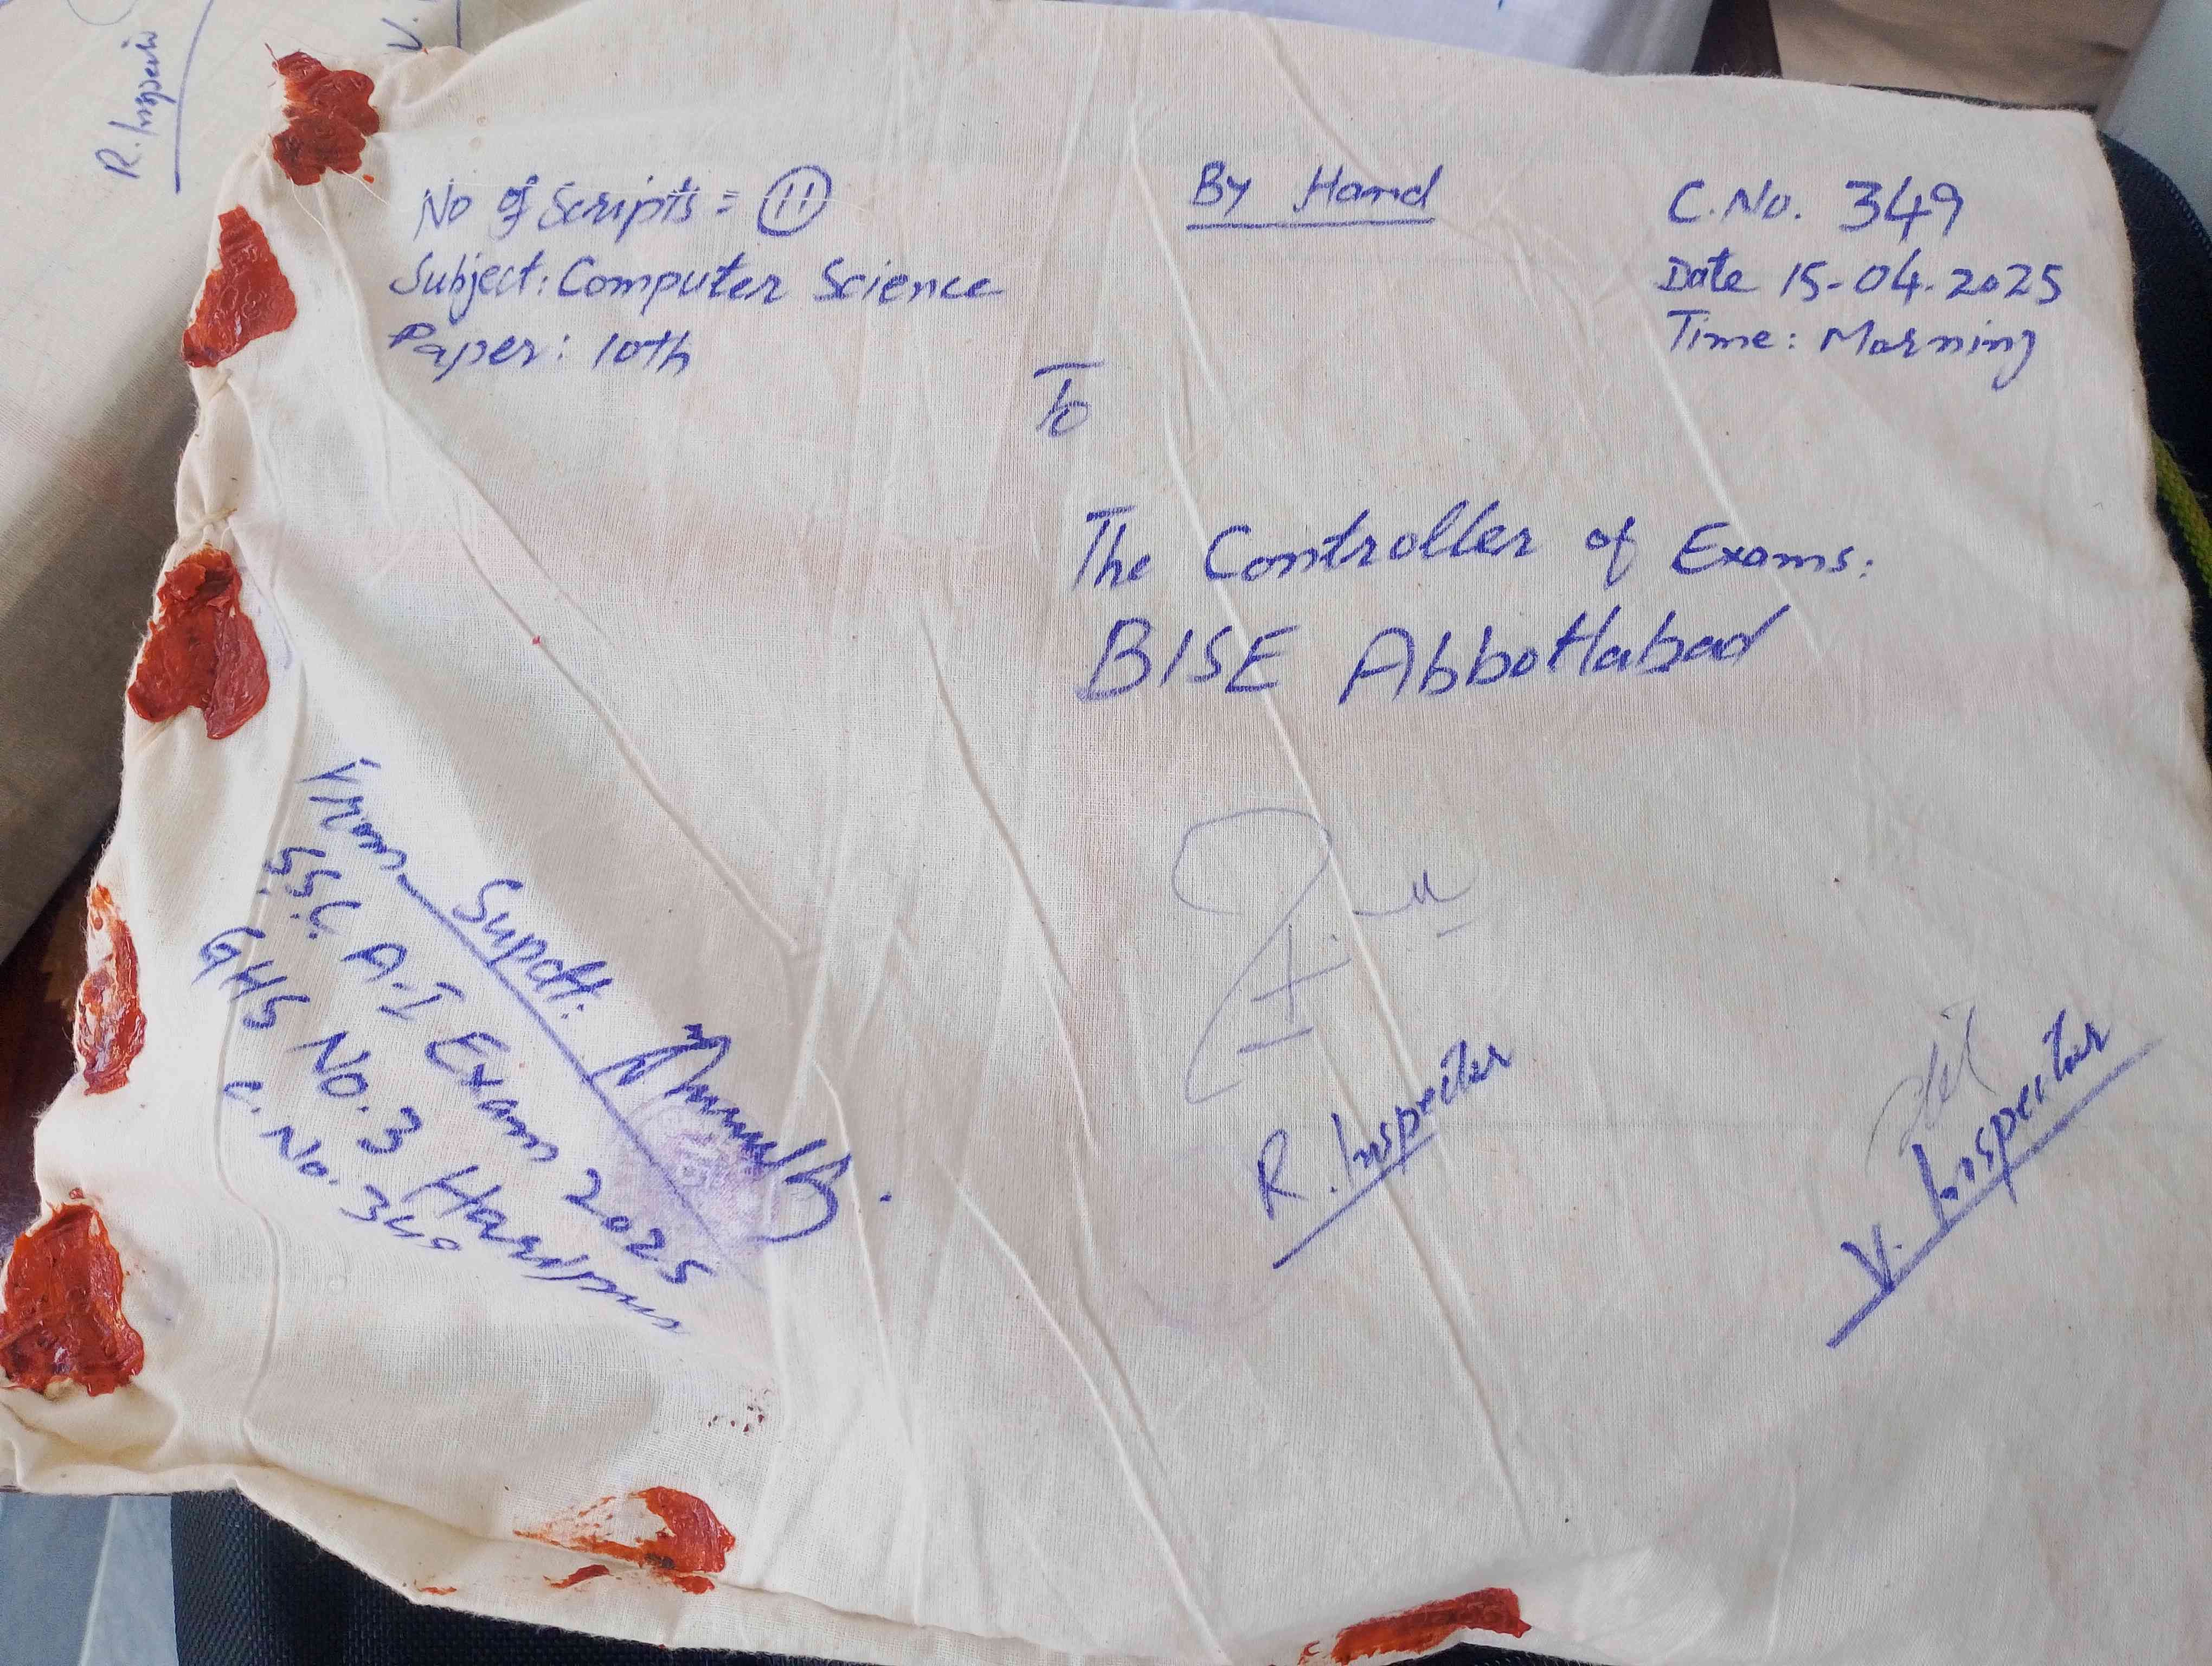 R. Inspector
V.
No of Scripts = 11
Subject: Computer Science
Paper: 10th
By Hand
C.No. 349
Date 15-04-2025
Time: Morning
To
The Controller of Exams:
BISE Abbottabad
From Supdtt:
SSC A-I Exam 2025
GHS No.3 Haripur
C. No. 349
R. Inspector
V. Inspector